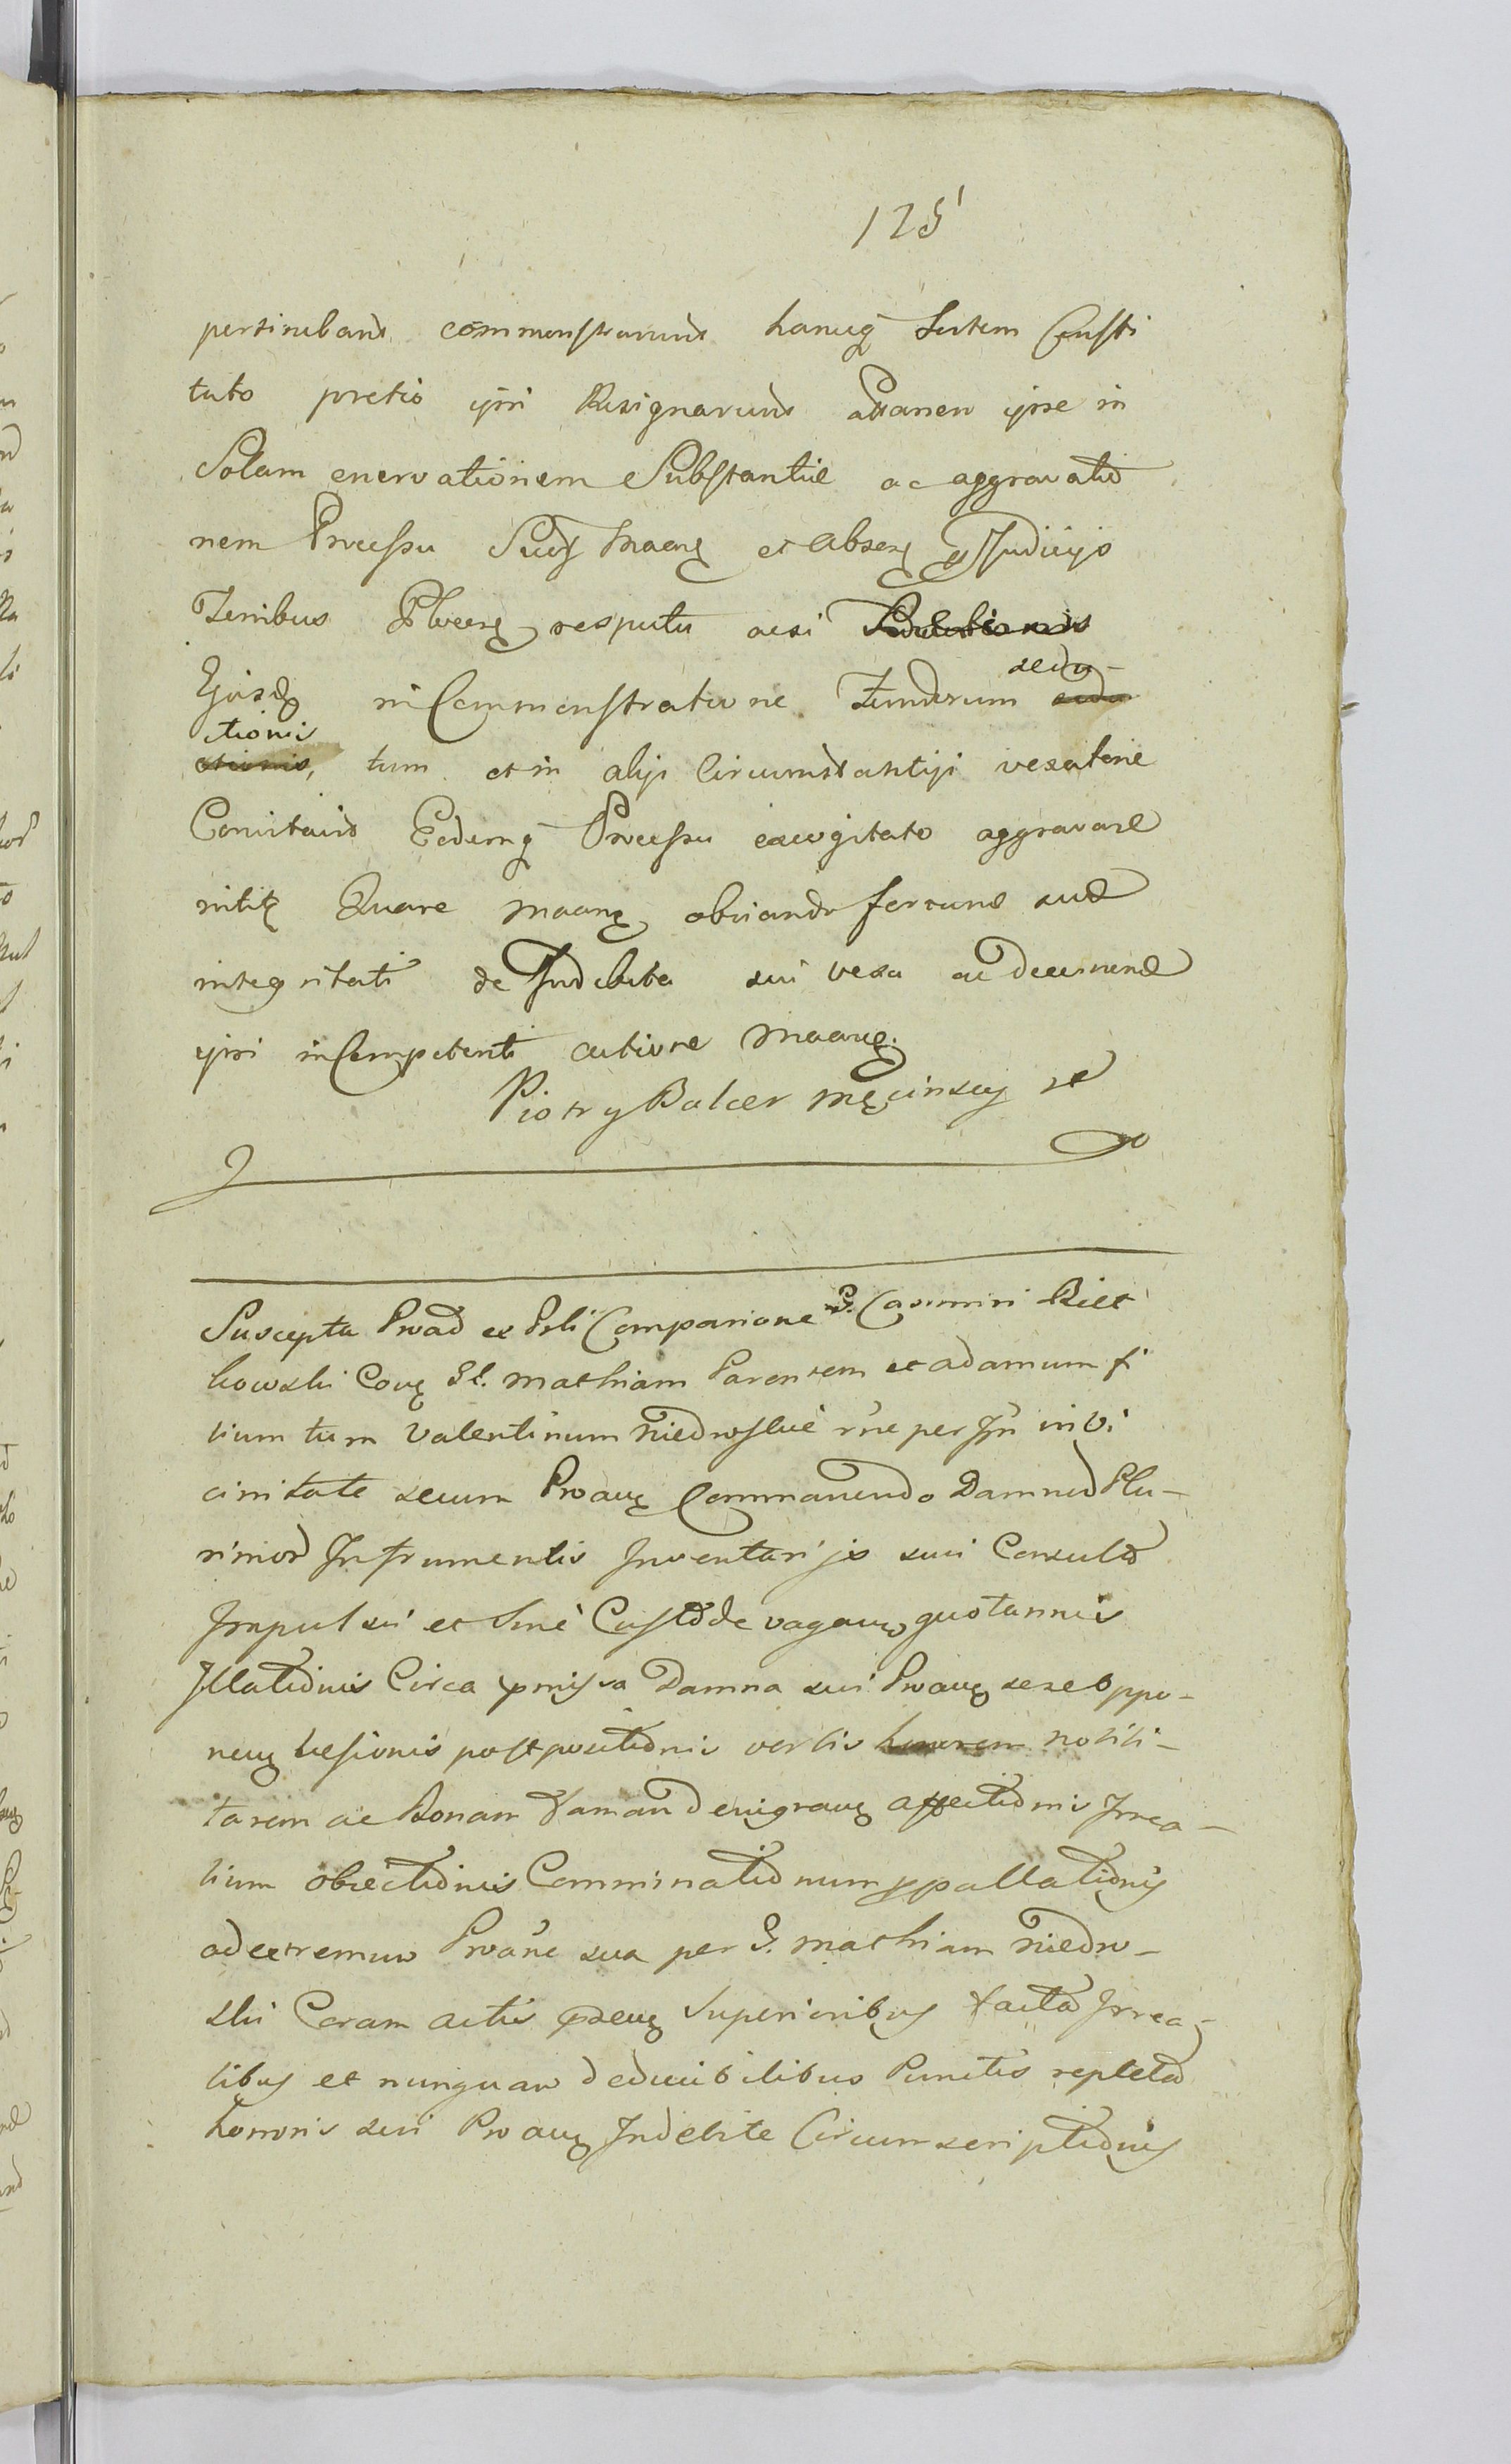 125
pertinebant commonstrarunt hancq Sortem Consti
tuto pretio ipsi Resignarunt attamen ipse in
Solam enervationem Substantiæ ac aggravatio
nem Processu Suo Maong et abseng Judicijs
Zenibus respectu acsi
sedu-
Ejusd in Commonstratione funderum
ctionis
tum et in alijs Circumstantijs vexatione
Comitand Eodemq Processu excogitato aggravare
nititq Quare Maong obviando fortunæ suæ
integritati de Indebita sui vexa ac decernenda
ipsi in Competenti actione Maong.
Piotr y Balcer Męcinscy
Suscepta Prad et Prli Comparione G. Casimiri Biel
kowski Cong Gl. Mathiam Parentem et adamum fi
lium tum Valentinum Niedroskie r'ne per Jn' in Vi
cinitate secum Proang Commanendo Damno Plu-
rimor Instrumentis Inventarijs sui Consulto
Impulsu et Sine Custode vagan quotannis
Illationis Circa pmissa Damna sui Proang sese oppo-
neng læsionis postpositionis verbis nobili-
tarem ac Bonam Faman denigrang affectionis Irrea-
lium obiectionis Comminationum ppallationis
ad extremum Proane sua per G. Mathiam Niedro-
ski Coram actis pseng Superioribus facta Irrea-
libus et nunquam deducibilibus Punctis repleta
honoris sui Proang Indebite Circumscriptionis